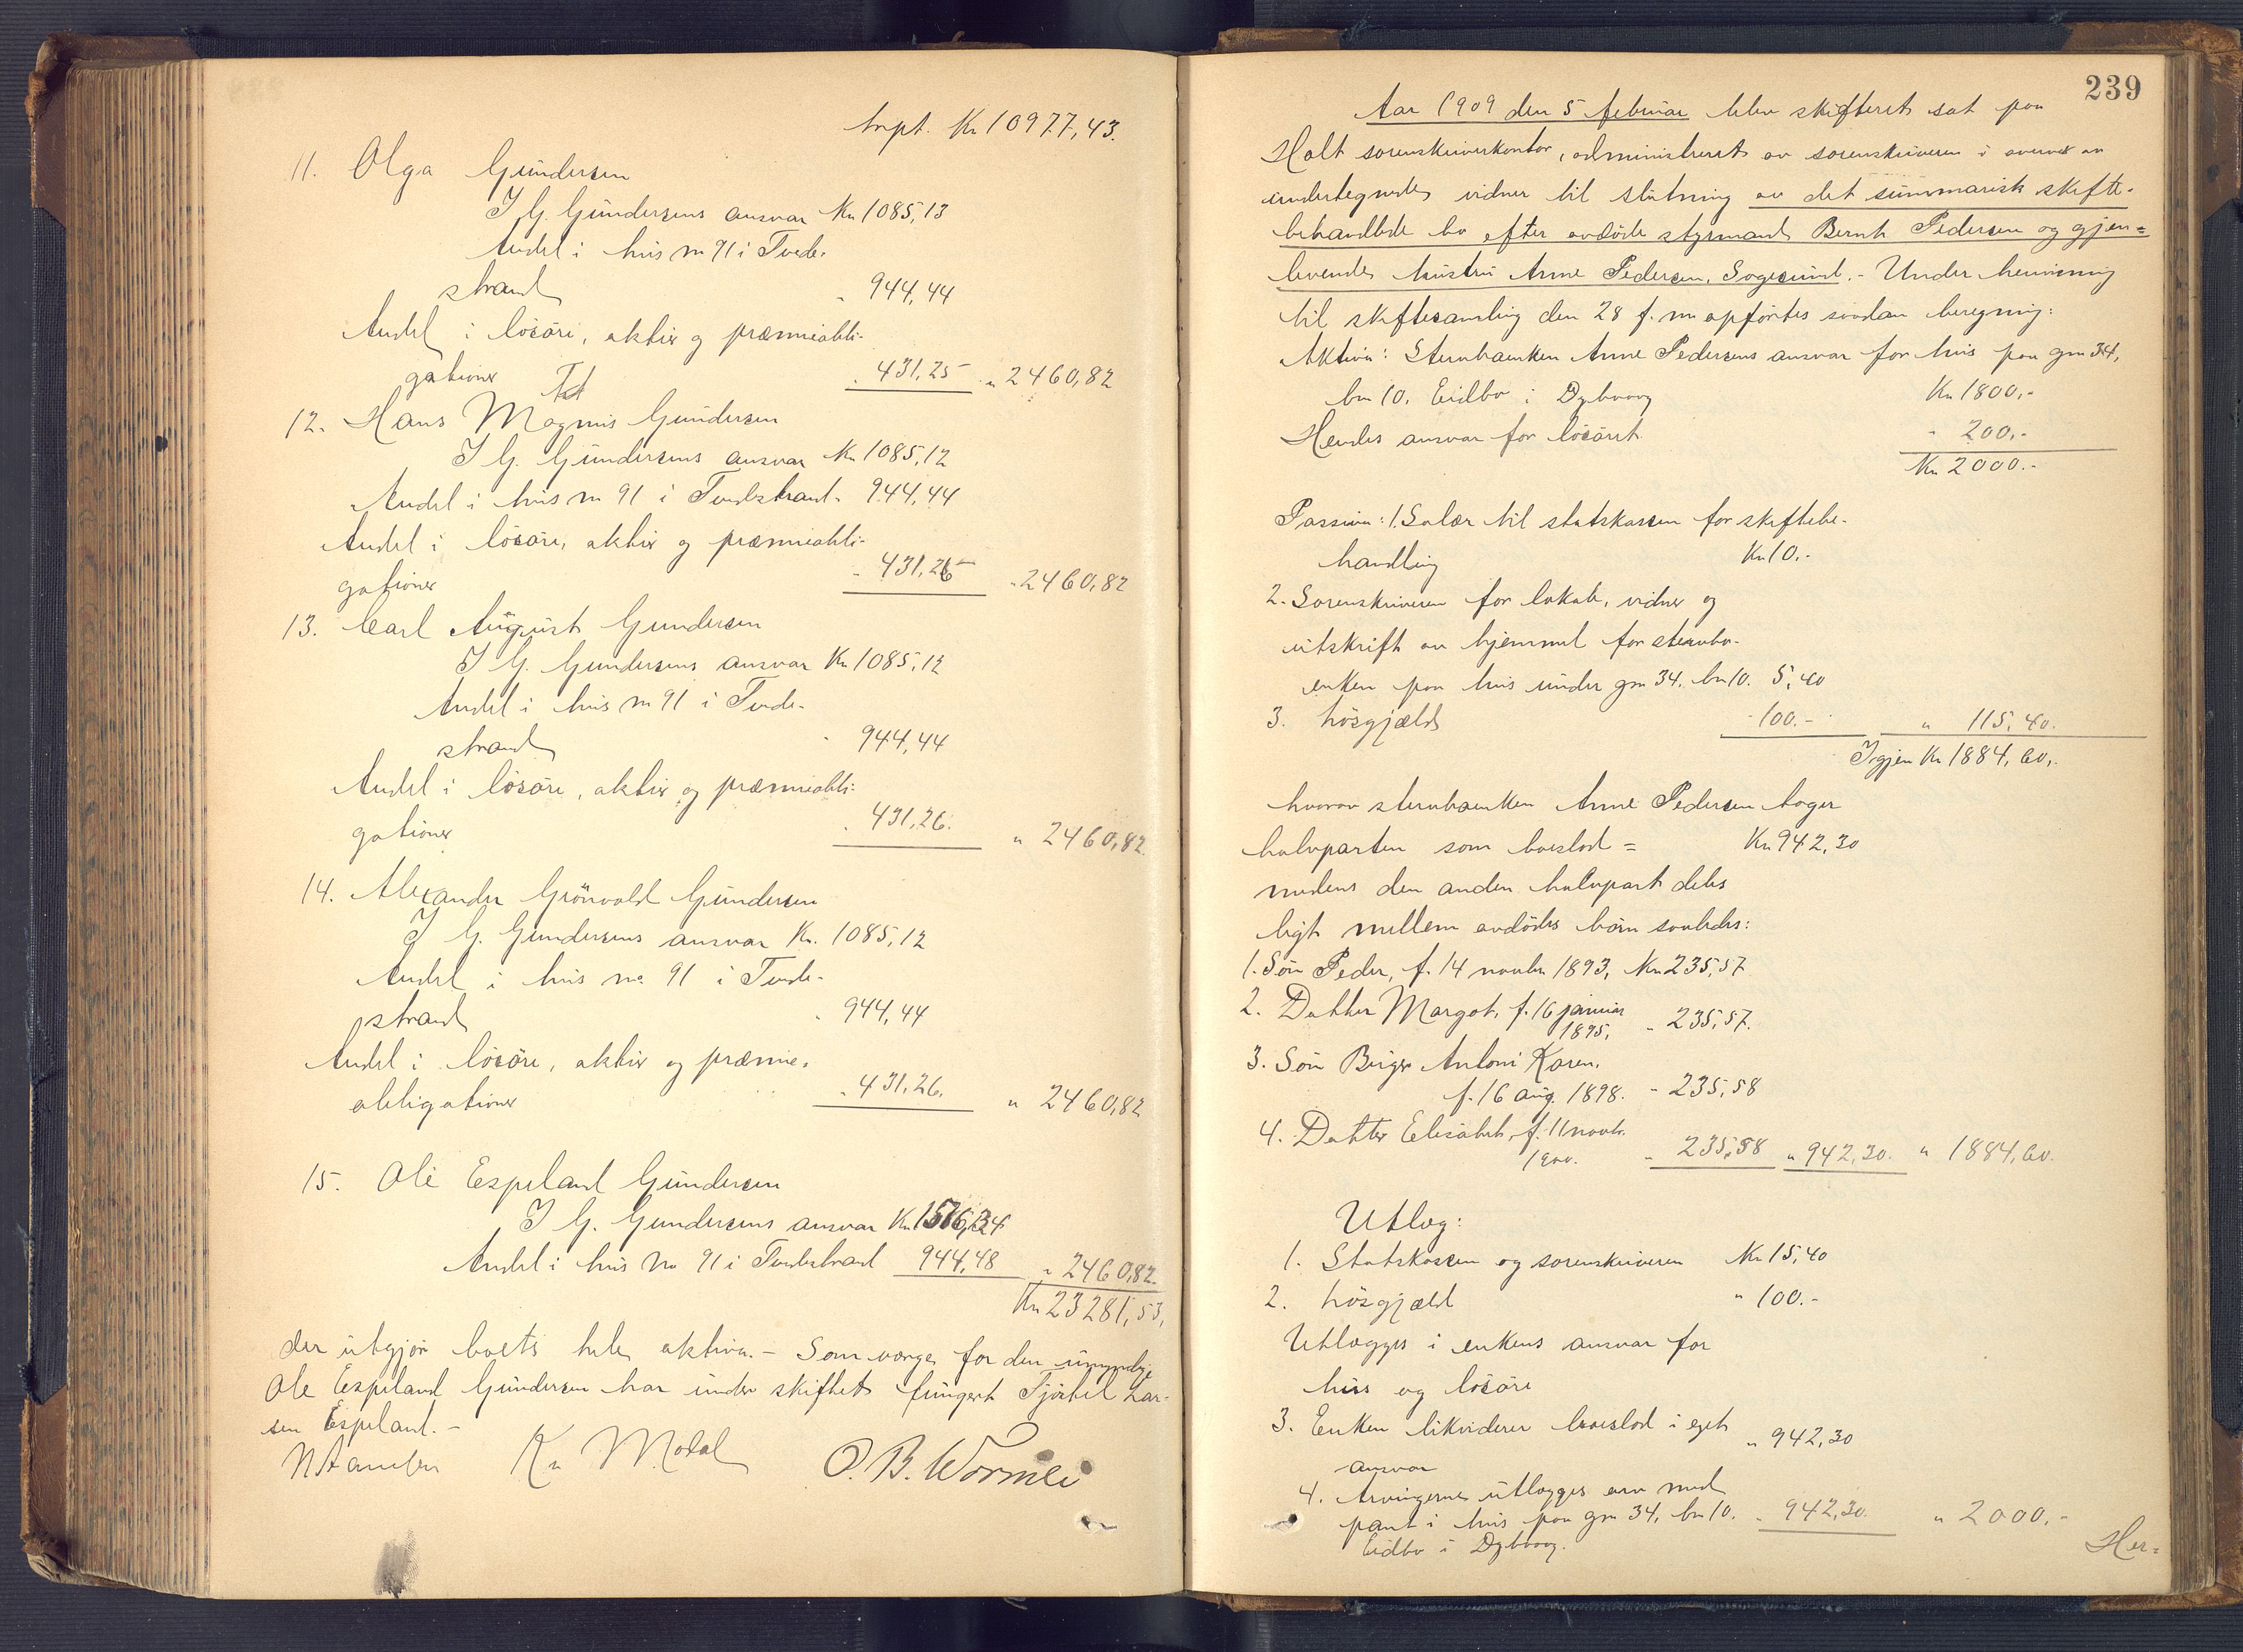 trpt. Kr 10977,43.
11. Olga Gundersen
I G. Gundersens ansvar Kr 1085,13
Andel i hus no 91 i Tvede-
strand " 944,44
Andel i løsøre, aktier og præmieobli-
gationer " 431,25 " 2460,82
12. Hans Magnus Gundersen
I G. Gundersens ansvar Kr 1085,12
Andel i hus no 91 i Tvedestrand - 944,44
Andel i løsøre, aktier og præmieobli-
gationer " 431,26 " 2460,82
13. Carl August Gundersen
I G. Gundersens ansvar Kr 1085,12
Andel i hus no 91 i Tvede-
strand " 944,44
Andel i løsøre, aktier og præmieobli-
gationer " 431,26. " 2460,82.
14. Alexander Grönvold Gundersen
I G. Gundersens ansvar Kr. 1085,12
Andel i hus no 91 i Tvede-
strand " 944,44
Andel i løsøre, aktier og præmie-
obligationer " 431,26. " 2460,82
15. Ole Espeland Gundersen
I G. Gundersens ansvar Kr 1516,34
Andel i hus No 91 i Tvedestrand 944,48 " 2460,82.
Kr 23281,53,
der utgjør boets hele aktiva. – Som verge for den umyndige
Ole Espeland Gundersen har under skiftet fungert Tjøstel Lar-
sen Espeland. –
Kr Modal O. B. Wormli
239
Aar 1909 den 5 februar blev skifteret sat paa
Holt sorenskriverkontor, administreret av sorenskriveren i overvær av
undertegnede vidner til slutning av det summarisk skifte-
behandlede bo efter avdøde styrmand Bernt Pedersen og gjen=
levende hustru Anne Pedersen, Sagesund. – Under henvisning
til skiftesamling den 28 f. m. opførtes saadan beregning:
Aktiva: Stervboenken Anne Pedersens ansvar for hus paa gno 34,
bno 10. Eidbo i Dybvaag Kr 1800,-
Hendes ansvar for løsøret " 200,-
Kr 2000.-
Passiva: 1. Salær til statskassen for skiftebe-
handling Kr 10.-
2. Sorenskriveren for lokale, vidner og
utskrift av hjemmel for stervbo-
enken paa hus under gno 34, bno 10. 5,40
3. Løsgjæld - 100.- " 115,40.
Igjen Kr 1884,60,-
hvorav stervboenken Anne Pedersen tager
halvparten som boeslod = Kr 942,30
medens den anden halvpart deles
ligt mellem avdødes børn saaledes:
1. Søn Peder, f. 14 novbr 1893, Kr 235,57
2. Datter Margot, f. 16 januar
1895, " 235,57.
3. Søn Birger Antoni Karen,
f. 16 aug. 1898. " 235,58
4. Datter Elisabet, f. 11 novbr.
1900. " 235,58 " 942,30. " 1884,60.
Utlæg:
1. Statskassen og sorenskriveren Kr 15,40
2. Løsgjæld " 100.-
Utlægges i enkens ansvar for
hus og løsøre
3. Enken likviderer boeslod i eget
ansvar " 942,30
4. Arvingerne utlægges arv med
pant i hus paa gno 34, bno 10. " 942,30. " 2000,-
Eidbo i Dybvaag.
Her=